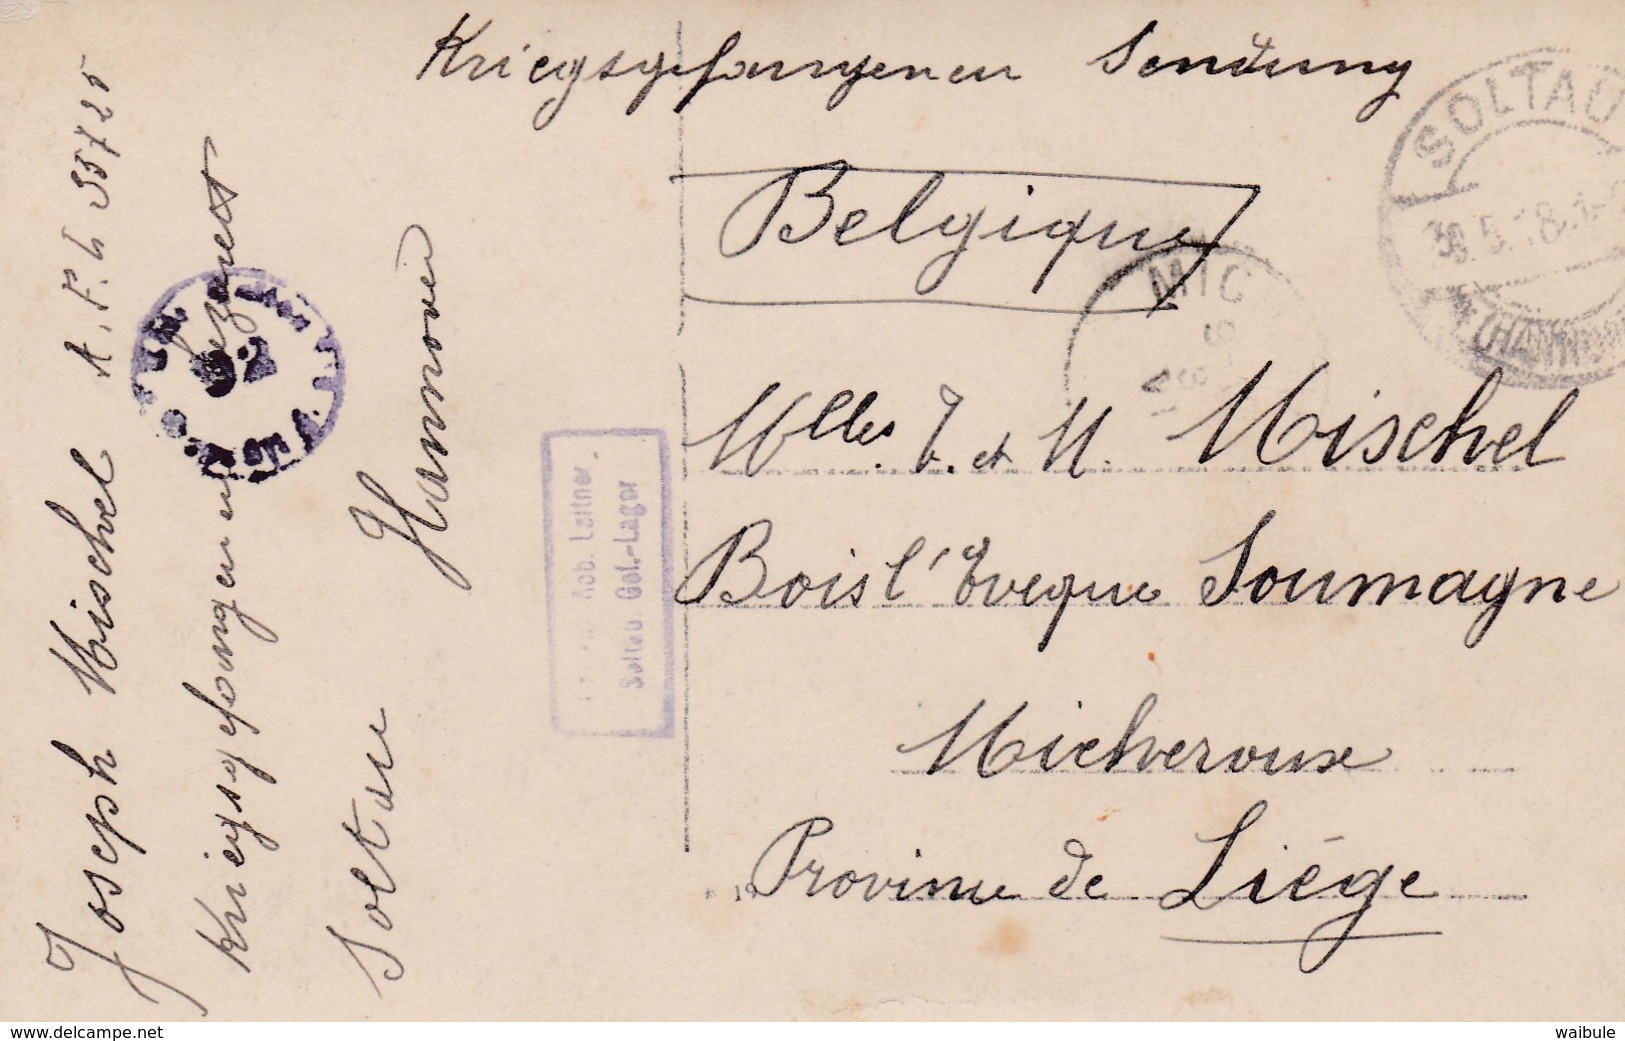 Kriegsgefangenen Sendung
Belgique
Mlles. J. et M. Mischel
Bois l'Eveque Soumagne
Micheroux
Province de Liége
Joseph Mischel A.F.L 55725
Kriegsgefangenen Lazarett
Soltau Hannover
SOLTAU
30.5.18.
(HANNOVER
MIC
Soltau Gef.-Lager
www.delcampe.net
waibule